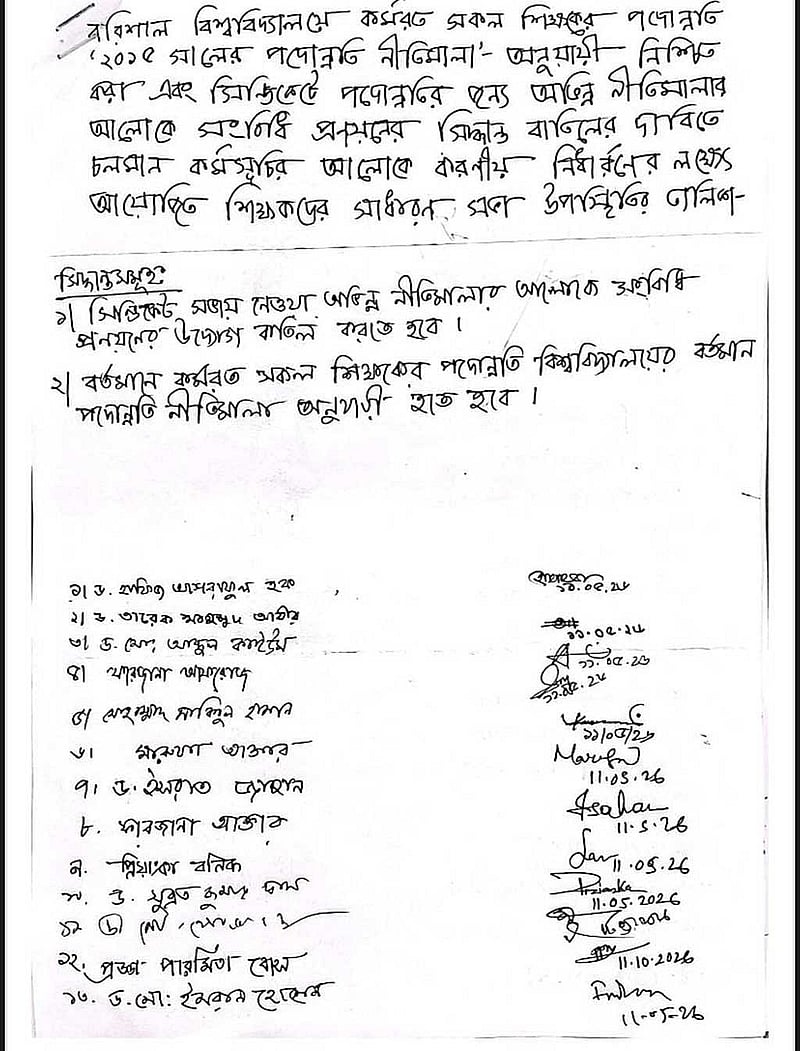 বরিশাল বিশ্ববিদ্যালয়ে কর্মরত সকল শিক্ষকের পদোন্নতি
'২০১৫ সালের পদোন্নতি নীতিমালা'- অনুযায়ী নিশ্চিত
করা এবং সিন্ডিকেটে পদোন্নতির জন্য অভিন্ন নীতিমালার
আলোকে সংবিধি প্রনয়নের সিদ্ধান্ত বাতিলের দাবিতে
চলমান কর্মসূচির আলোকে করণীয় নির্ধারনের লক্ষ্যে
আয়োজিত শিক্ষকদের সাধারন সভা উপস্থিতির তালিকা-
সিদ্ধান্তসমূহ
১| সিন্ডিকেট সভায় নেওয়া অভিন্ন নীতিমালার আলোকে সংবিধি
প্রনয়নের উদ্যোগ বাতিল করতে হবে।
২| বর্তমানে কর্মরত সকল শিক্ষকের পদোন্নতি বিশ্ববিদ্যালয়ের বর্তমান
পদোন্নতি নীতিমালা অনুযায়ী হতে হবে।
১| ড. হাফিজ আশরাফুল হক
১১.০৫.২৬
২| ড. তারেক মাহমুদ আবীর
১১.০৫.২৬
৩| ড. মো. আব্দুল কাইউম
১১.০৫.২৬
৪| ফারজানা
১১.০৫.২৬
৫| মোহাম্মদ সাকিবুল হাসান
১১/০৫/২৬
৬| মারুফা আক্তার
Marufa
11.05.26
৭। ড. ইসরাত জাহান
Israhan
11.5.26
৮. ফারজানা আক্তার
11.05.26
৯. প্রিয়াংকা বনিক
Priyanka
11.05.2026
১০. ড. সুব্রত কুমার দাস
১১. ড. মো.
১২. প্রজ্ঞা পারমিতা বোস
11.10.2026
১৩. ড. মো: ইমরান হোসেন
Imran
11-05-26